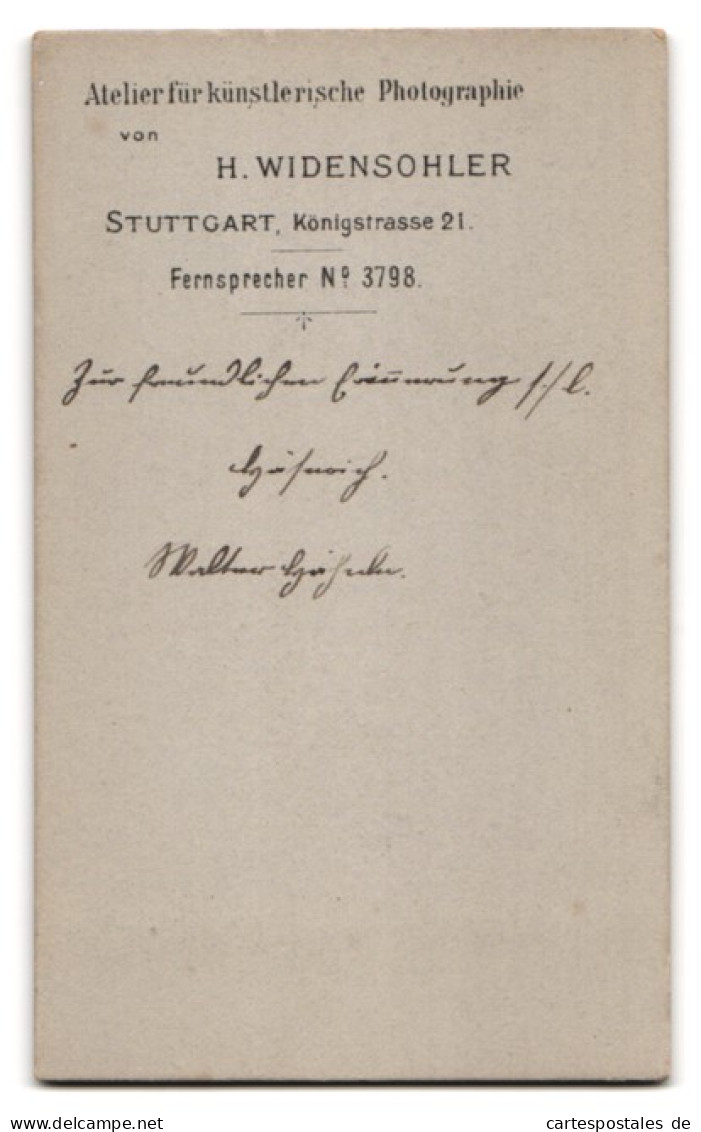 Atelier für künstlerische Photographie
von
H. WIDENSOHLER
STUTTGART, Königstrasse 21.
Fernsprecher Nº 3798.
Zur freundlichen Erinnerung s/l.
Walter
www.delcampe.net
cartespostales de